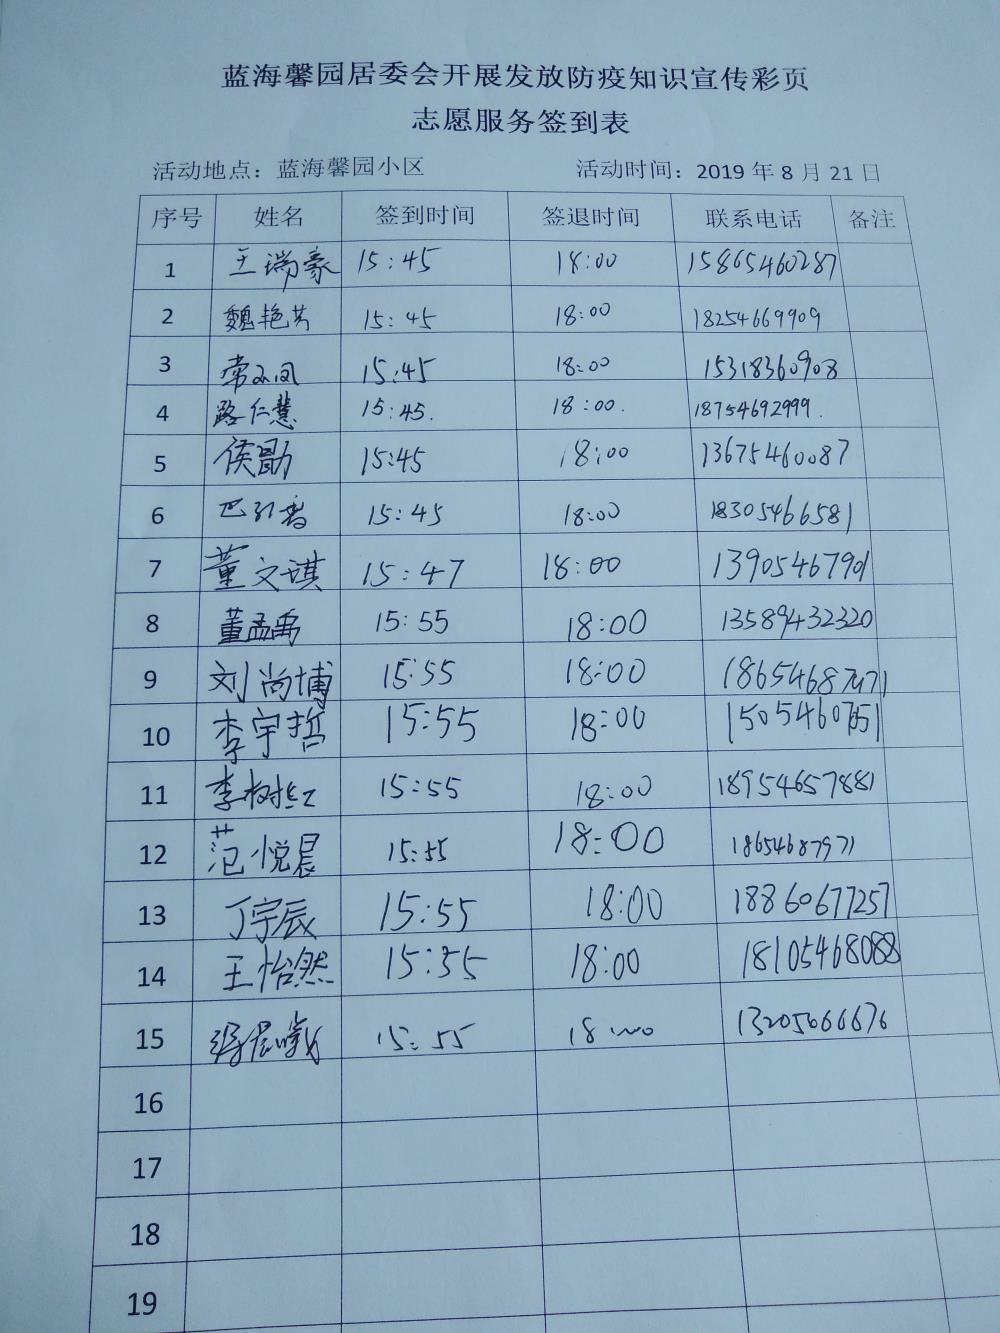 蓝海馨园居委会开展发放防疫知识宣传彩页
志愿服务签到表
活动地点：蓝海馨园小区 活动时间：2019 年 8 月 21 日
序号 姓名 签到时间 签退时间 联系电话 备注
1 王瑞豪 15:45 18:00 15865460287
2 魏艳芳 15:45 18:00 18254669909
3 15:45 18:00 15318360908
4 路仁慧 15:45. 18:00. 18754692999.
5 侯勖 15:45 18:00 13675460087
6 15:45 18:00 18305466581
7 董文琪 15:47 18:00 13905467901
8 董孟禹 15:55 18:00 13589432320
9 刘尚博 15:55 18:00
10 李宇哲 15:55 18:00
11 李树红 15:55 18:00 18954657881
12 范悦晨 15:55 18:00 18654687971
13 丁宇辰 15:55 18:00 18860677257
14 王怡然 15:55 18:00 18105468088
15 15:55 18:00
16
17
18
19